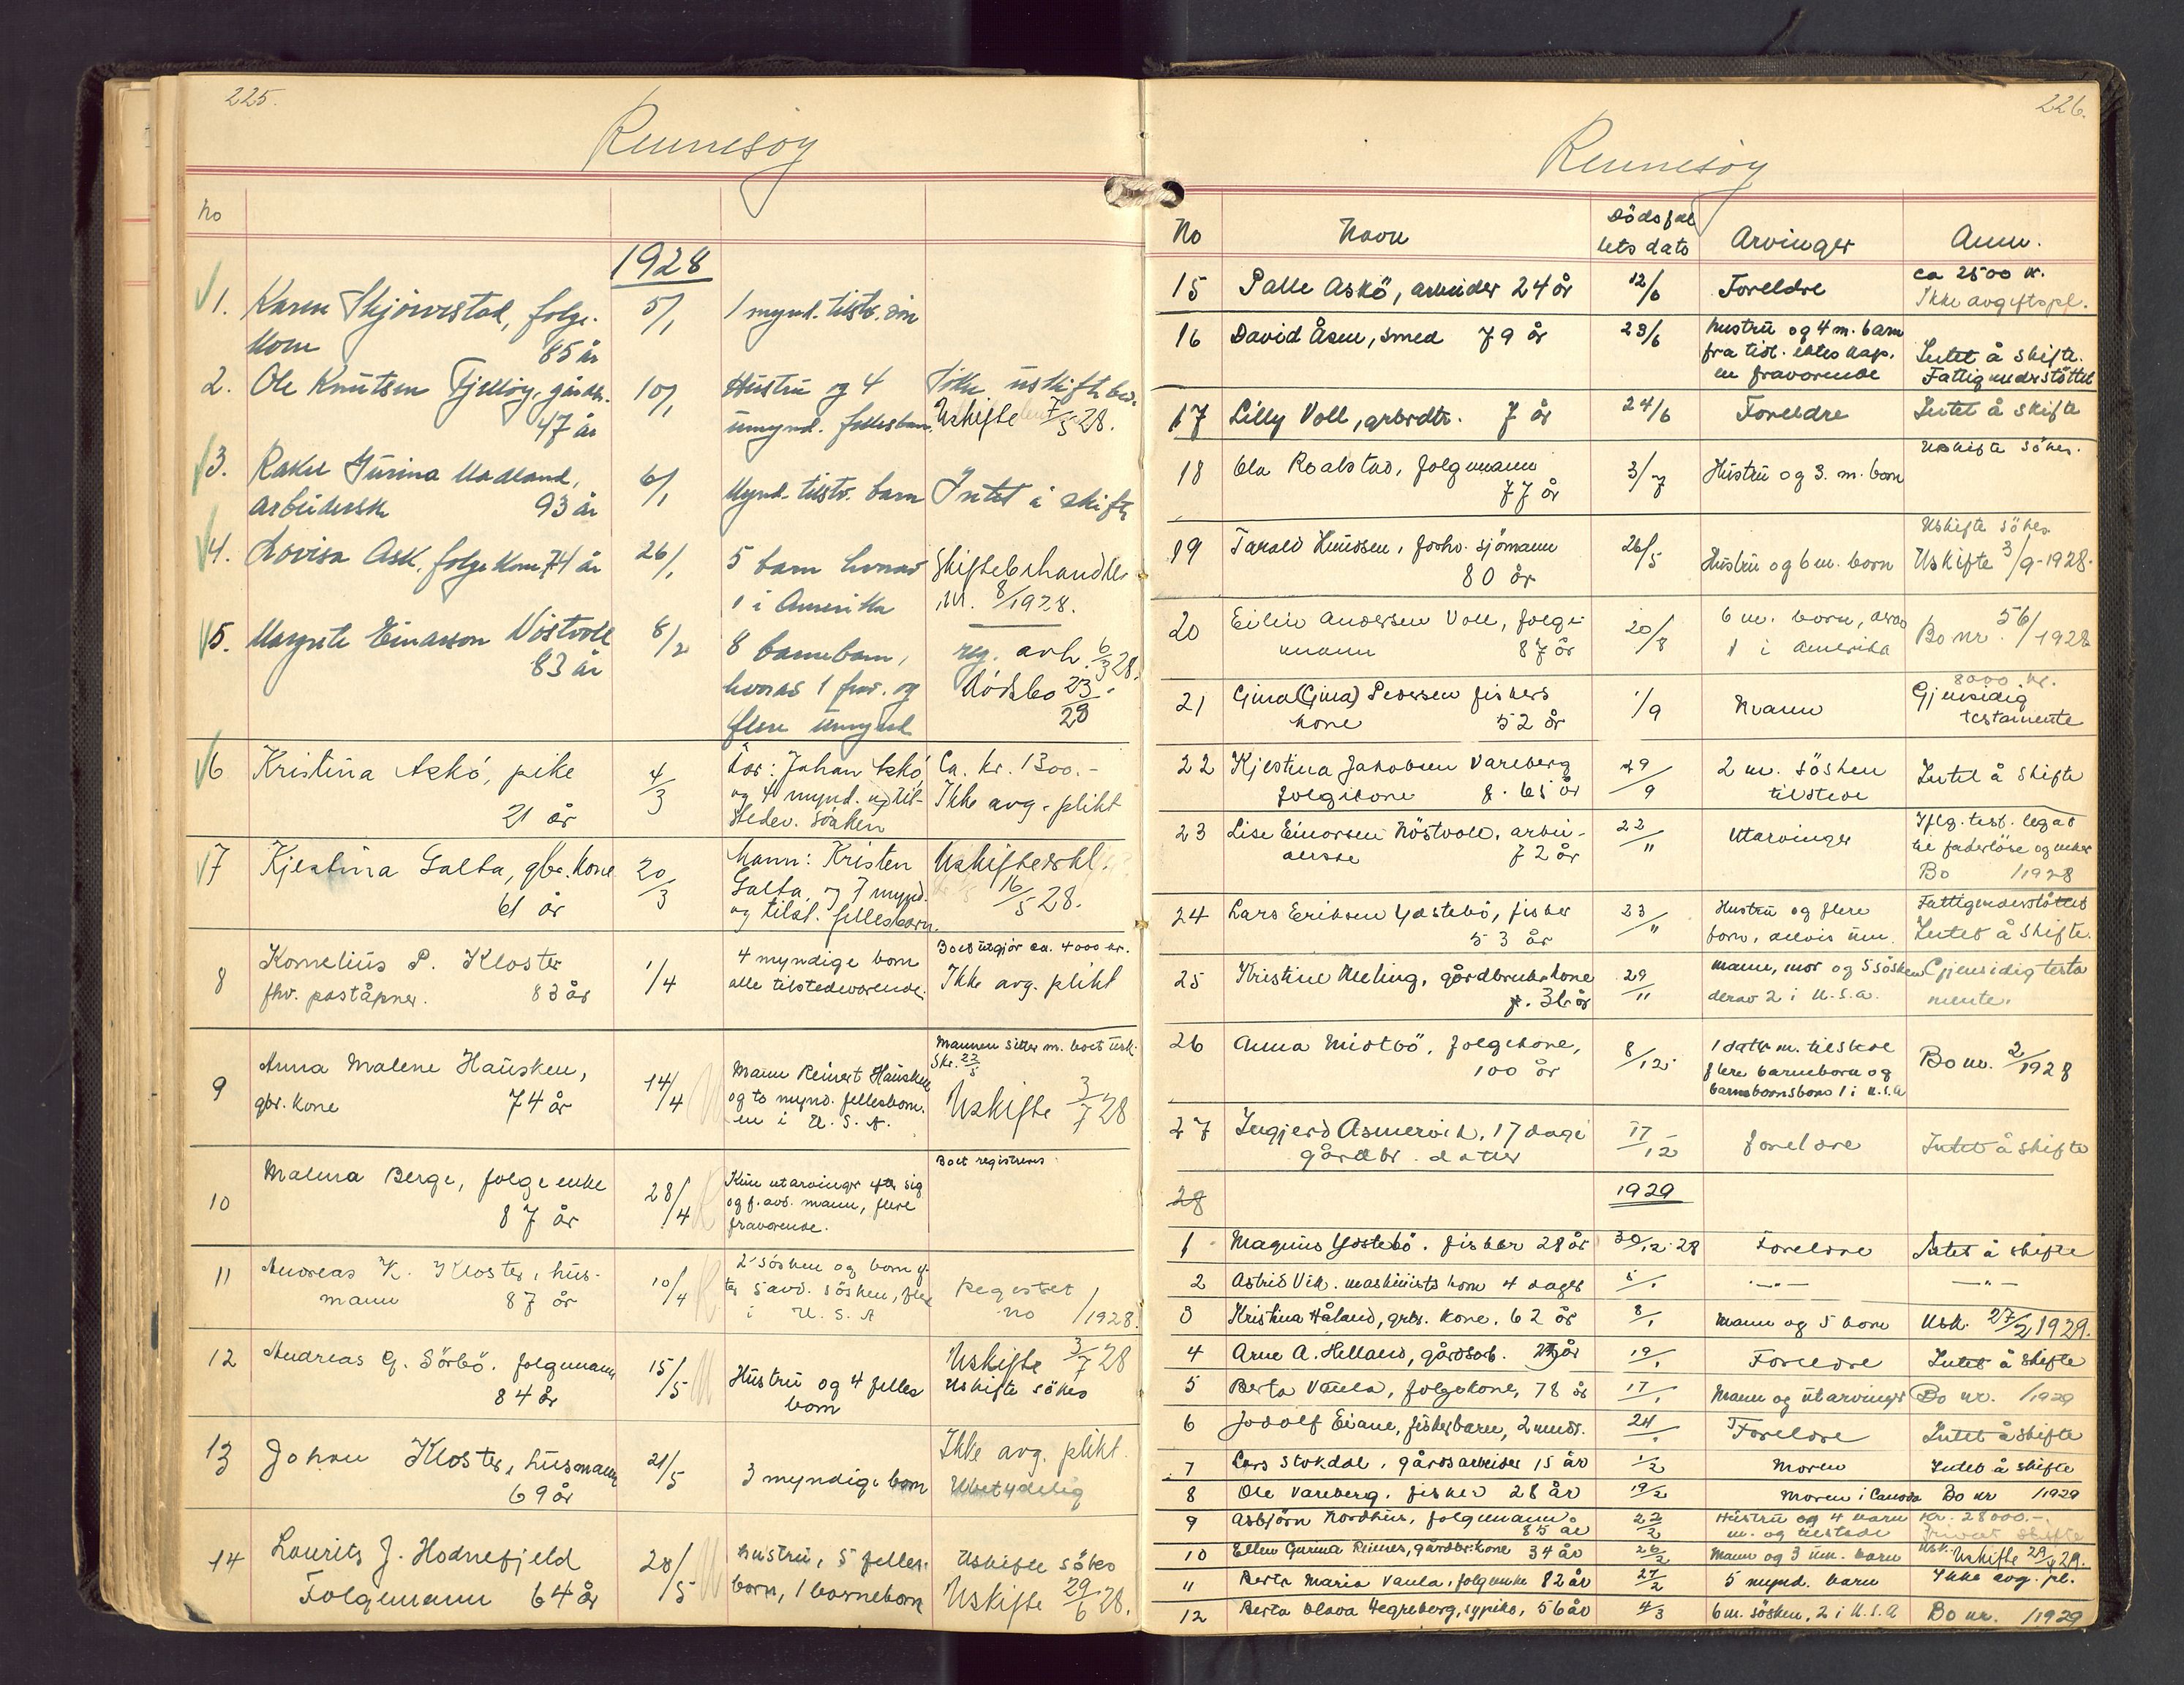 225.
Rennesøy
No
1928
1. Karen Skjørvestad, folge- 5/1 1 mynd. tilstv. søn
kone 85 år
2. Ole Knutsen Fjelløy, gårdbr. 10/1 Hustru og 4 Söke uskiftebev.
47 år umynd. fellesbarn. Uskifte 7/5 28.
3. Rakel Gurina Madland, 6/1 Mynd. tilstv. barn Intet å skifte
arbeiderske 93 år
4. Lovisa Ask, folgekone 74 år 26/1 5 barn hvorav Skiftebehandles
1 i Amerika nr. 8/1928.
5. Margrete Einarson Nöstvoll 8/2 8 barnebarn, reg. avh. 6/3 28.
83 år hvorav 1 frav. og dödsbo 23/28
flere umynd
6 Kristina Askö, pike 4/3 Far: Johan Askö, Ca. kr. 1300.-
21 år og 4 mynd. og til- Ikke avg.-plikt
stedev. søsken
7 Kjestina Galta, gbr. kone 20/3 Mann: Kristen Uskifteerkl.
61 år Galta, og 7 mynd. 16/5 28.
og tilst. fellesbarn.
8 Kornelius P. Kloster 1/4 4 myndige born Boet utgjör ca. 4000 kr.
fhv. poståpner. 83 år alle tilstedeværende. Ikke avg. plikt
9 Anna Malene Hausken, 14/4 Mann Reinert Hausken Mannen sitter m. boet usk.
gbr. kone 74 år og to mynd. fellesborn. Skr. 22/5
en i U.S.A. Uskifte 3/7 28
10 Malena Berge, folgeenke 28/4 Kun utarvinger efter sig Boet registreres
87 år og f. avd. mann, flere
fraværende.
11 Andreas K. Kloster, hus- 10/4 2 søsken og born ef-
mann 87 år ter 5 avd. søsken, flere Registret
i U.S.A no /1928.
12 Andreas G. Sörbö. folgemann 15/5 Hustru og 4 felles Uskifte 3/7 28
84 år born Uskifte sökes
13 Johan Kloster, husmann 21/5 3 myndige born Ikke avg. plikt.
69 år Ubetydelig
14 Laurits J. Hodnefjeld 28/5 Hustru, 5 felles- Uskifte sökes
Folgemann 64 år born, 1 barneborn Uskifte 29/6 28.
226.
Rennesøy
No Navn Dödsfal Arvinger Anm.
lets dato
15 Palle Askö, arbeider 24 år 12/6 Foreldre ca 2500 kr.
Ikke avgiftspl.
16 David Åsen, smed 79 år 23/6 Hustru og 4 m. barn
fra tidl. ekteskap. Intet å skifte.
en fraværende Fattigunderstöttet
17 Lilly Voll, grbrdtr. 7 år 24/6 Foreldre Intet å skifte
18 Ola Roalstad, folgemann 3/7 Hustru og 3. m. born Uskifte sökes.
77 år
19 Tarald Knudsen, forhv. sjömann 26/5 Hustru og 6 m. born Uskifte sökes
80 år Uskifte 3/9-1928.
20 Eilen Andersen Voll, folge- 20/8 6 m. born, derav Bo nr. 56/1928
mann 87 år 1 i Amerika
21 Gina (Gina) Pedersen fiskers 1/9 Mann 8000 kr.
kone 52 år Gjensidig
testamente
22 Kjestina Jakobsen Vareberg 29/9 2 m. sösken Intet å skifte
folgekone f. 65 år tilstede
23 Lise Einarsen Nöstvoll, arbei- 22/11 Utarvinger Iflg. test. legat
derske 72 år til faderlöse og enker
Bo /1928
24 Lars Eriksen Ydstebö, fisker 23/11 Hustru og flere Fattigunderstöttet
53 år born, delvis um. Intet å skifte.
25 Kristine Meling, gårdbruk. kone 29/11 Mann, mor og 5 søsken Gjensidig testa
f. 36 år derav 2 i U.S.A. mente.
26 Anna Midtbö, folgekone, 8/12 1 datr m. tilstede Bo nr. 2/1928
100 år flere barneborn og
barneborns born 1 i U.S.A
27 Ingjerd Asmervik, 17 dage 17/12 foreldre Intet å skifte
gårdbr. datter
28 1929
1 Magnus Ydstebö. fisker 28 år 30/12 28 Foreldre Intet å skifte
2 Astrid Vik. maskinists barn 4 dager 5/1 -"- -"-
3 Kristina Håland, grbr. kone. 62 år 8/1 Mann og 5 born Usk. 27/2 1929.
4 Arne A. Helland, gårdsarb. år 19/1 Foreldre Intet å skifte
5 Berta Vaula, folgekone, 78 år 17/1 Mann og utarvinger Bo nr. /1929
6 Jodolf Eiane, fiskerbarn, 2 mndr. 24/1 Foreldre Intet å skifte
7 Lars Stokdal, gårdsarbeider 15 år 1/2 Moren Intet å skifte
8 Ole Vareberg. fisker 28 år 19/2 Moren i Canada Bo nr /1929
9 Asbjörn Nordhus, folgemann. 22/2 Hustru og 4 barn Kr. 28000.-
85 år m. og tilstede Privat skifte
10 Ellen Gurina Reimer, gårdbr. kone 34 år 26/2 Mann og 3 um. barn Usk. Uskifte 29/4 29.
11 Berta Maria Vaula, folgeenke 82 år 27/2 5 mynd. barn Ikke avg. pl.
12 Berta Olava Hegreberg, sypike, 56 år 4/3 6 m. søsken, 2 i U.S.A Bo nr. /1929